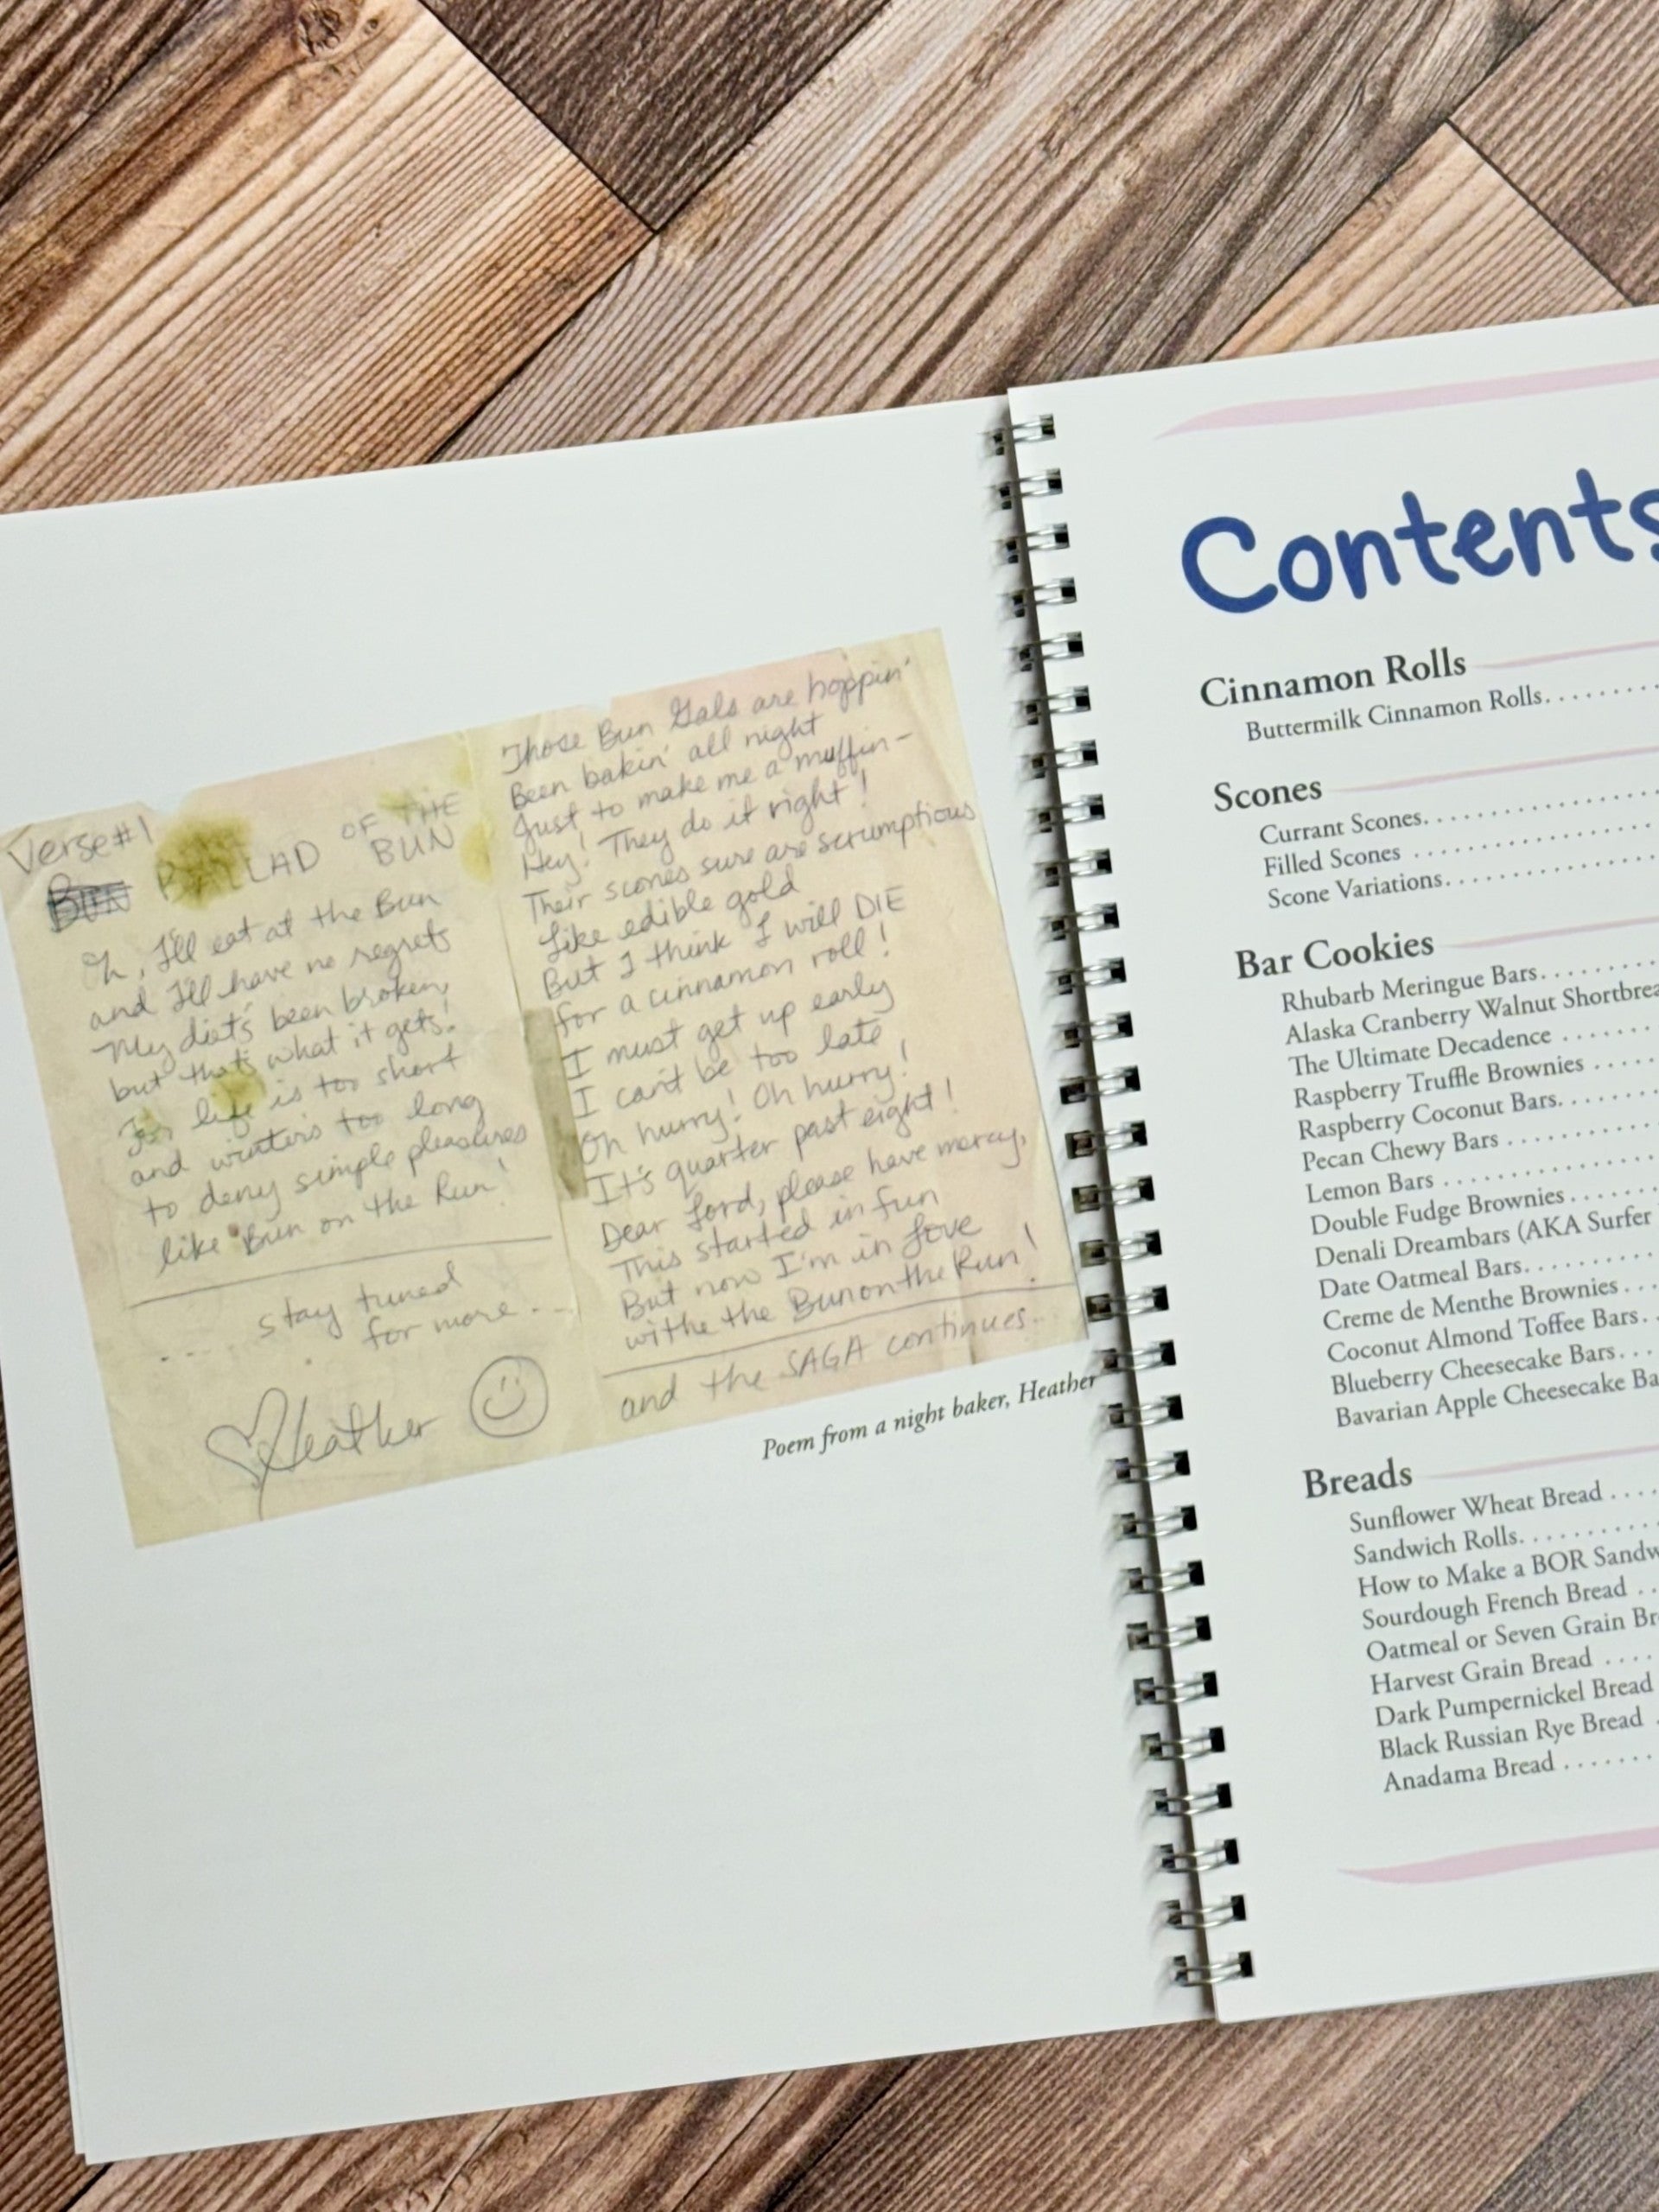 Verse #1
BALLAD OF THE
BUN
Oh, I'll eat at the Bun
and I'll have no regrets
My diet's been broken,
but that's what it gets!
For life is too short
and winters too long
to deny simple pleasures
like Bun on the Run!
..... stay tuned
for more...
Heather
Those Bun Gals are hoppin'
Been bakin' all night
Just to make me a muffin-
Hey! They do it right!
Their scones sure are scrumptious
Like edible gold
But I think I will DIE
for a cinnamon roll!
I must get up early
I can't be too late
Oh hurry! Oh hurry!
It's quarter past eight!
Dear Lord, please have mercy,
This started in fun
But now I'm in love
withe the Bun on the Run!
and the SAGA continues...
Poem from a night baker, Heather
Contents
Cinnamon Rolls
Buttermilk Cinnamon Rolls........
Scones
Currant Scones..................
Filled Scones ..................
Scone Variations................
Bar Cookies
Rhubarb Meringue Bars.........
Alaska Cranberry Walnut Shortbrea
The Ultimate Decadence ........
Raspberry Truffle Brownies .....
Raspberry Coconut Bars........
Pecan Chewy Bars ............
Lemon Bars .................
Double Fudge Brownies.......
Denali Dreambars (AKA Surfer
Date Oatmeal Bars..........
Creme de Menthe Brownies ...
Coconut Almond Toffee Bars..
Blueberry Cheesecake Bars...
Bavarian Apple Cheesecake Ba
Breads
Sunflower Wheat Bread ....
Sandwich Rolls...........
How to Make a BOR Sandw
Sourdough French Bread ..
Oatmeal or Seven Grain Br
Harvest Grain Bread ....
Dark Pumpernickel Bread
Black Russian Rye Bread .
Anadama Bread .......